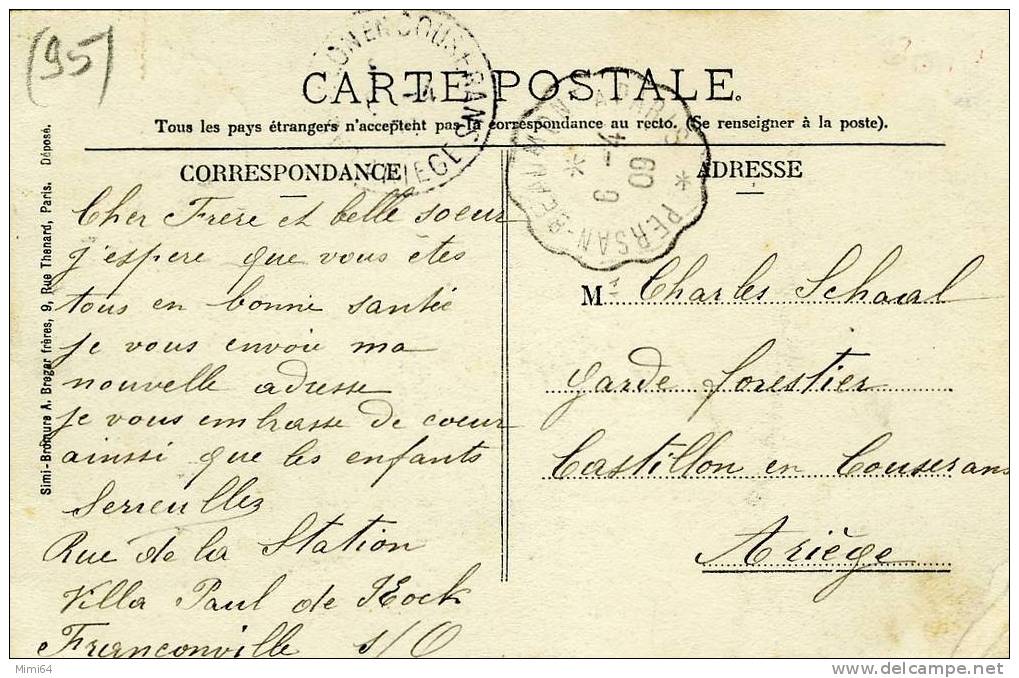 (95)
CARTE POSTALE.
Tous les pays étrangers n'acceptent pas la correspondance au recto. (Se renseigner à la poste).
CORRESPONDANCE
Cher Frère et belle soeur
j'espere que vous étes
tous en bonne santée
je vous envoie ma
nouvelle adresse
je vous embrasse de coeur
ainssi que les enfants
Rue de la Station
Villa Paul de Kock
Franconville s/O
ADRESSE
M Charles Schaal
garde forestier
Castillon en Couserans
Ariège
PERSAN-BEAUMON
6 -4
09
ON EN COUSERANS
ARIÈGE
Simi-Bromure A. Breger frères, 9, Rue Thenard, Paris. Déposé.
Mimi64
www.delcampe.net